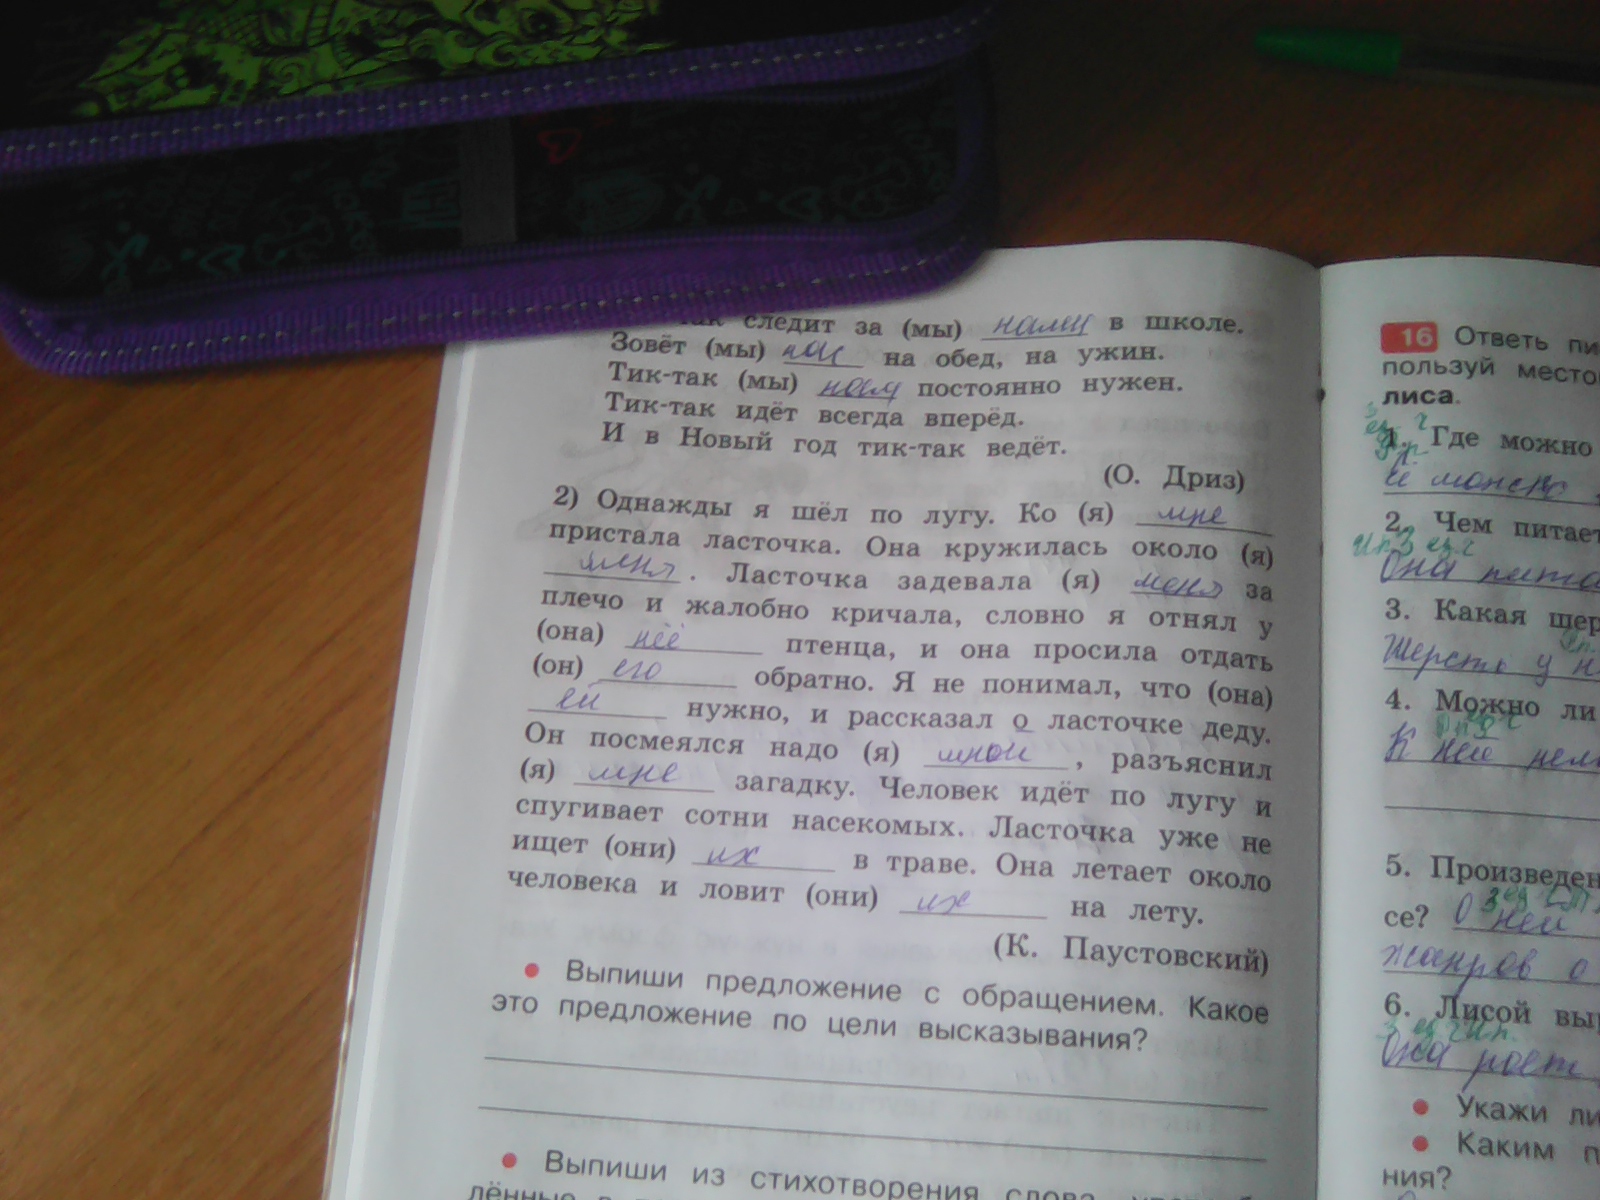 так следит за (мы) нами в школе.
Зовёт (мы) нас на обед, на ужин.
Тик-так (мы) нам постоянно нужен.
Тик-так идёт всегда вперёд.
И в Новый год тик-так ведёт.
(О. Дриз)
2) Однажды я шёл по лугу. Ко (я) мне
пристала ласточка. Она кружилась около (я)
меня. Ласточка задевала (я) меня за
плечо и жалобно кричала, словно я отнял у
(она) неё птенца, и она просила отдать
(он) его обратно. Я не понимал, что (она)
ей нужно, и рассказал о ласточке деду.
Он посмеялся надо (я) мной, разъяснил
(я) мне загадку. Человек идёт по лугу и
спугивает сотни насекомых. Ласточка уже не
ищет (они) их в траве. Она летает около
человека и ловит (они) их на лету.
(К. Паустовский)
• Выпиши предложение с обращением. Какое
это предложение по цели высказывания?
• Выпиши из стихотворения слова,
16 Ответь
пользуй
лиса.
1. Где можно
Её можно
2. Чем
Она
3. Какая
Шерсть у
4. Можно ли
К ней
5.
се? О ней
жанров о
6. Лисой
Она роет
• Укажи
• Каким
ния?